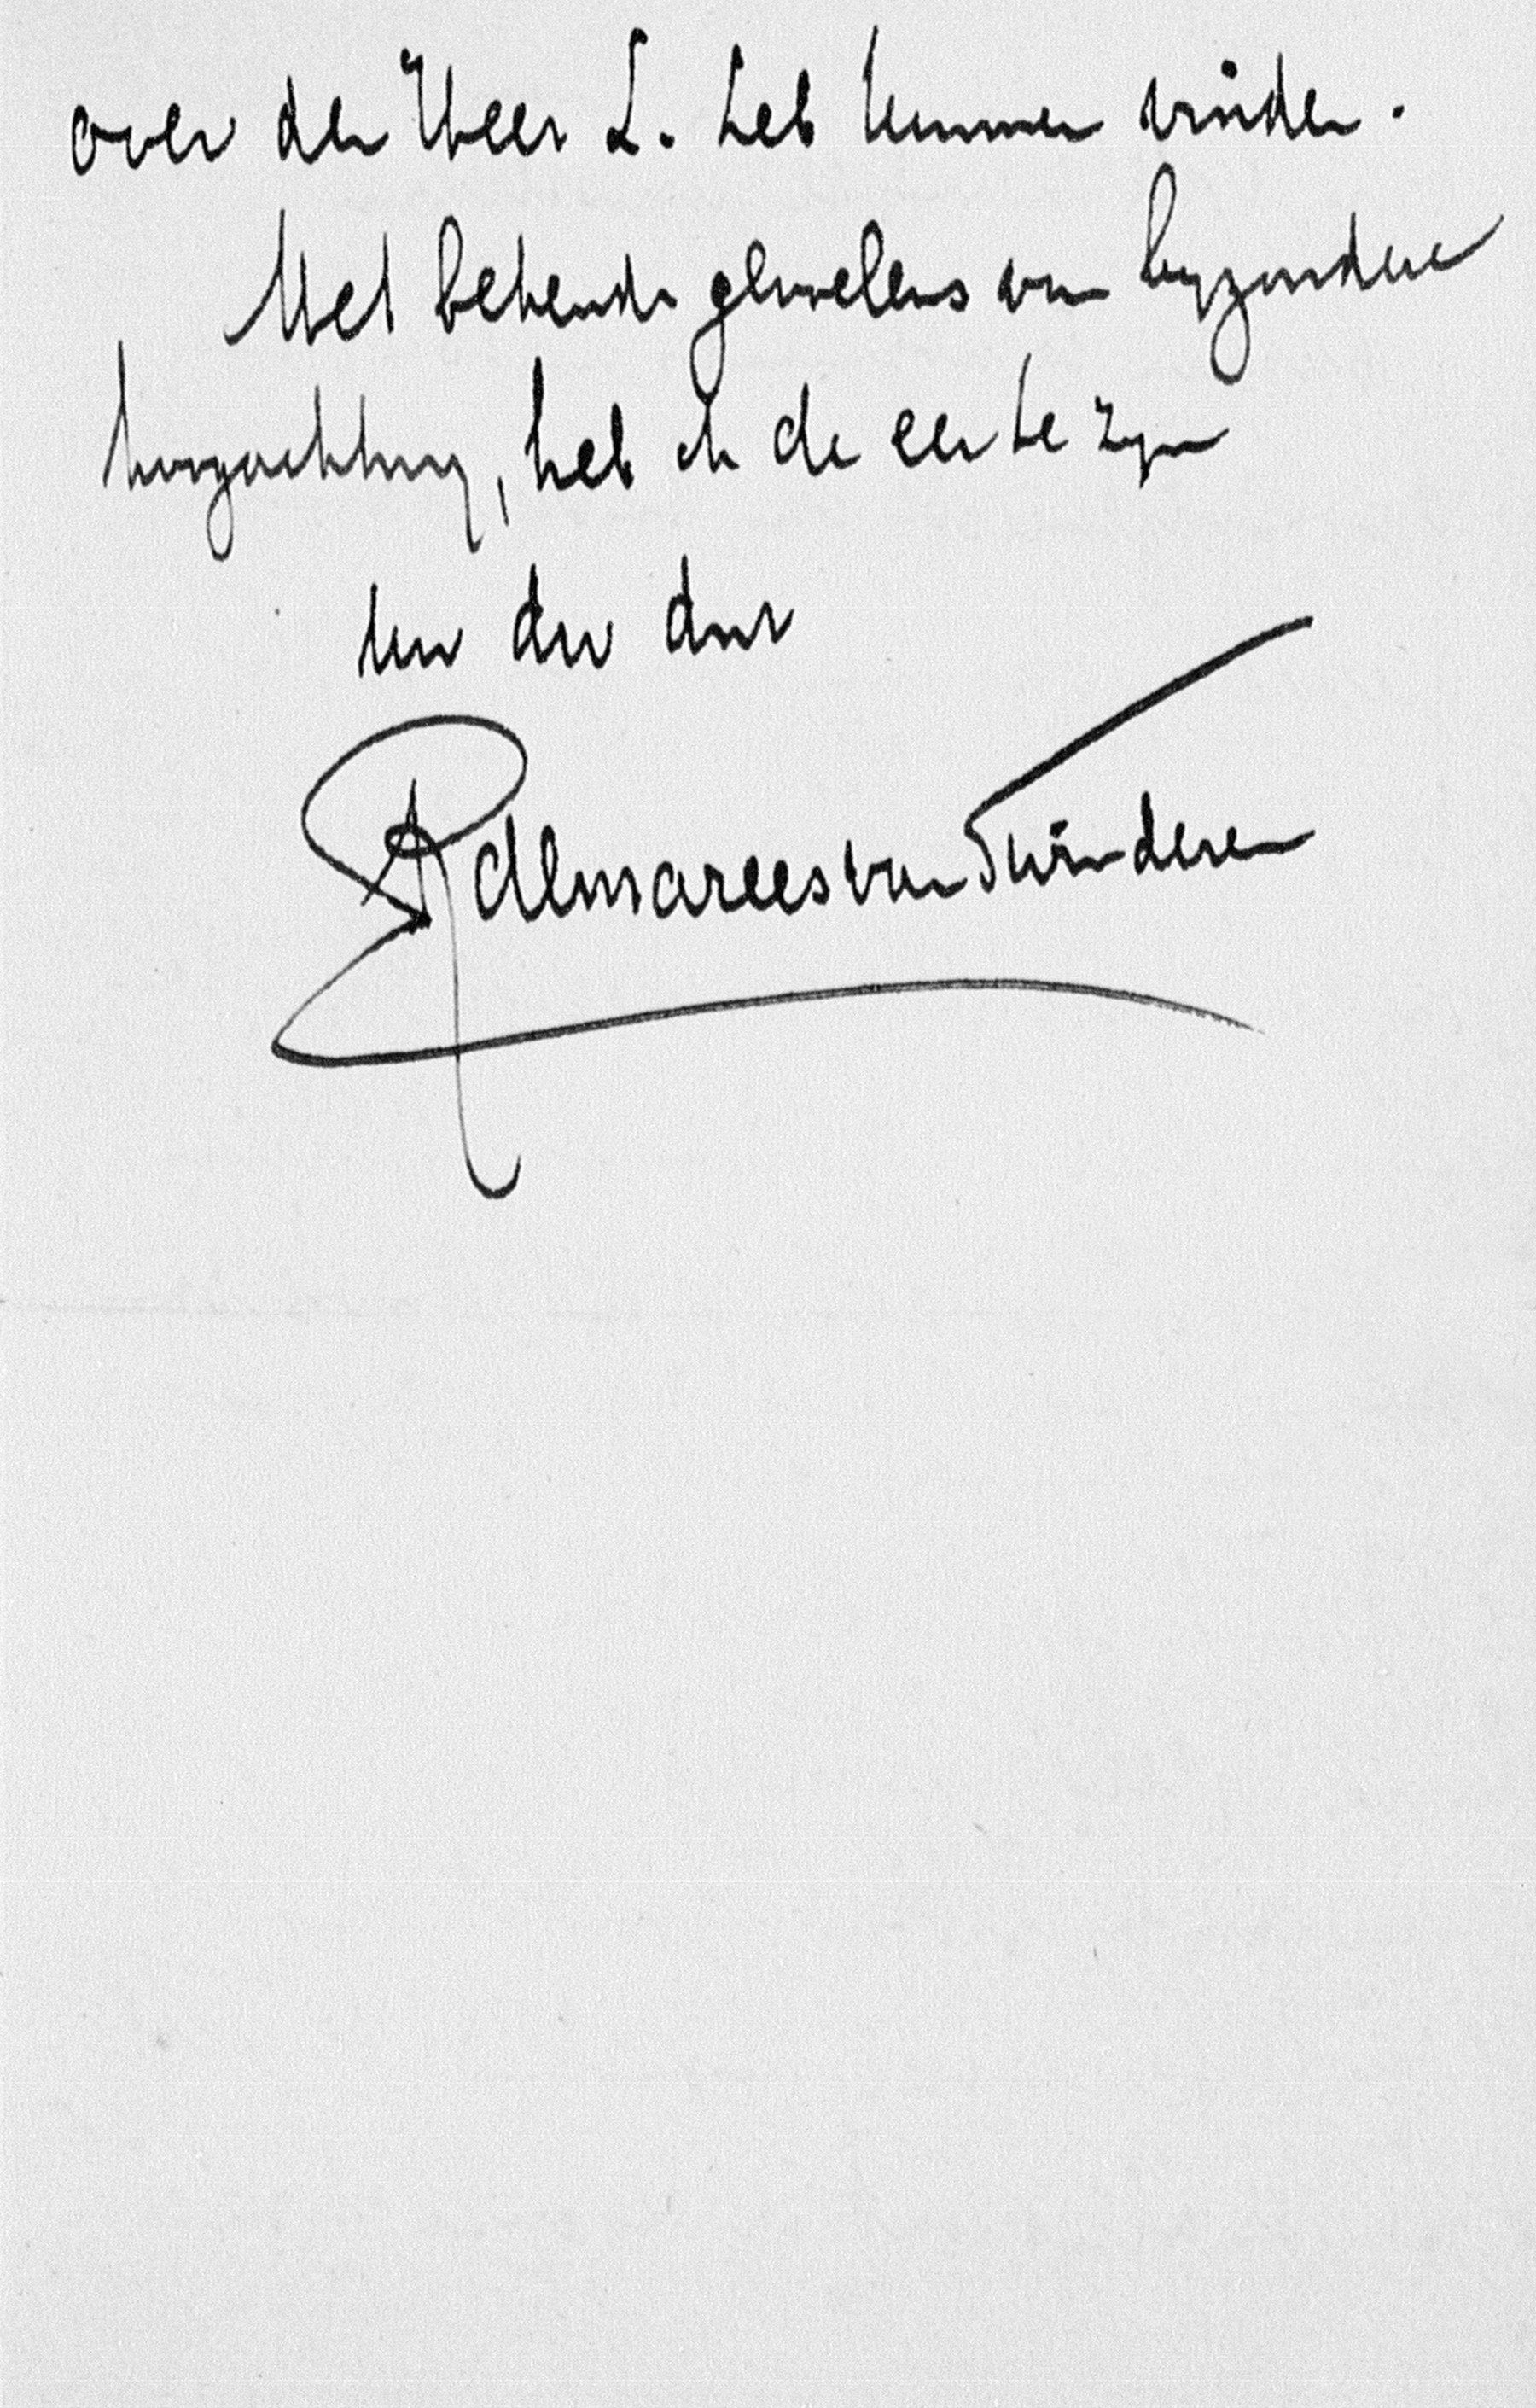 over den Heer L. heb kunnen vinden.
Met bekende gevoelens van byzondere
hoogachting, heb ik de eer te zyn
Uw dw dnr
R de Marees van Swinderen